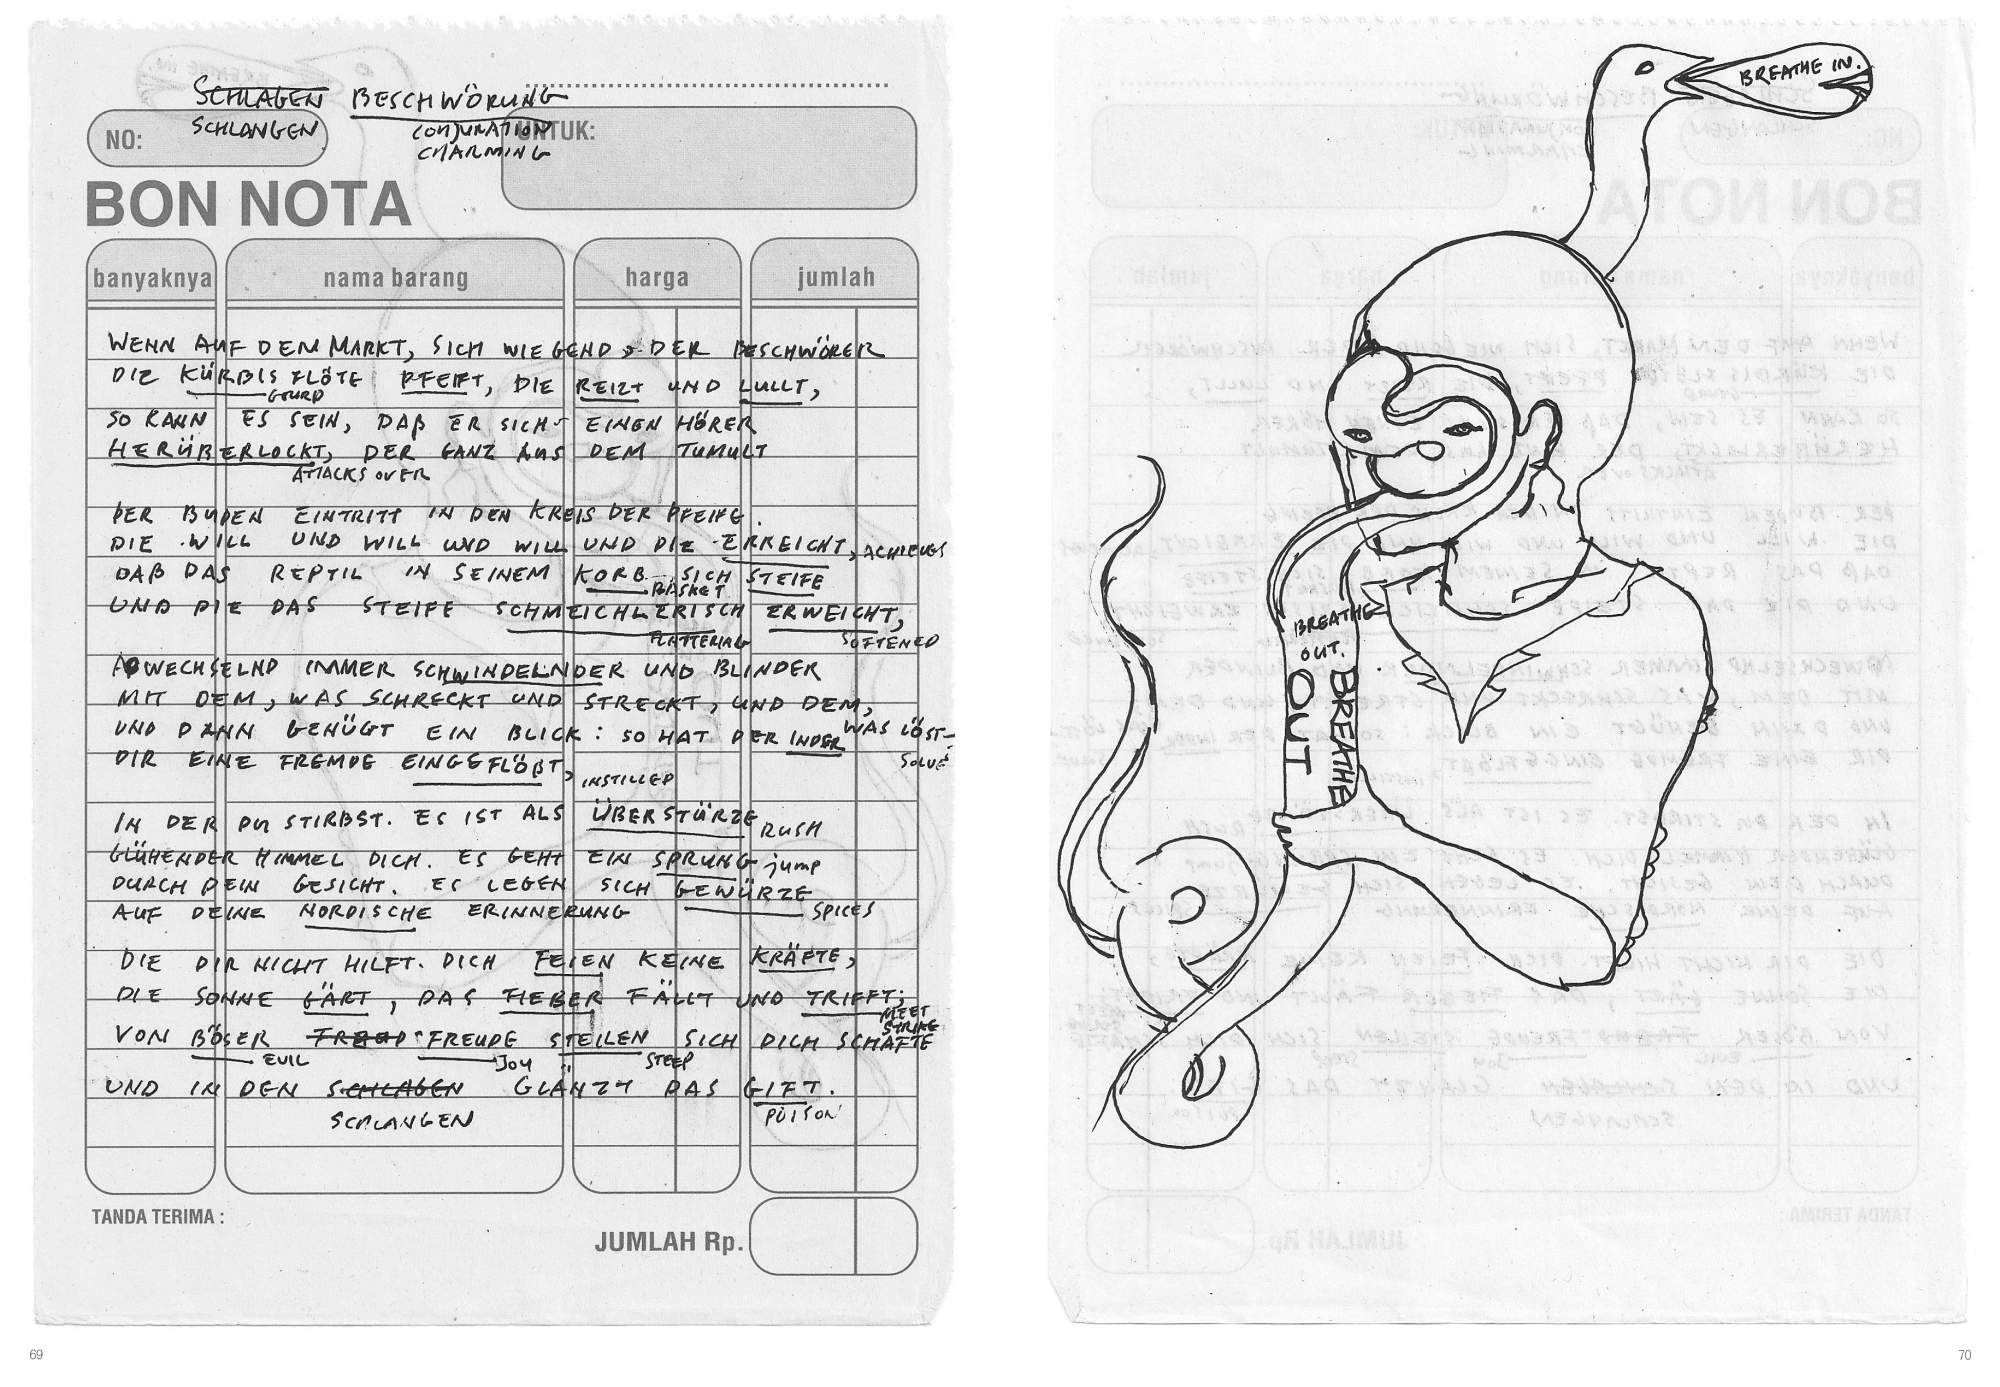 SCHLAGEN BESCHWÖRUNG
SCHLANGEN
CONJURATION
CHARMING
NO:
UNTUK:
BON NOTA
banyaknya nama barang harga jumlah
WENN AUF DEM MARKT, SICH WIEGEND, DER BESCHWÖRER
DIE KÜRBISFLÖTE PFEIFT, DIE REIZT UND LULLT,
GOURD
SO KANN ES SEIN, DAß ER SICH EINEN HÖRER
HERÜBERLOCKT, DER GANZ AUS DEM TUMULT
ATTACKS OVER
DER BUDEN EINTRITT IN DEN KREIS DER PFEIFE.
DIE WILL UND WILL UND WILL UND DIE ERREICHT, ACHIEVES
DAß DAS REPTIL IN SEINEM KORB SICH STEIFE
BASKET
UND DIE DAS STEIFE SCHMEICHLERISCH ERWEICHT,
FLATTERING SOFTENED
ABWECHSELND IMMER SCHWINDELNDER UND BLINDER
MIT DEM, WAS SCHRECKT UND STRECKT, UND DEM,
WAS LÖST-
SOLVE
UND DANN GENÜGT EIN BLICK: SO HAT DER INDER
DIR EINE FREMDE EINGEFLÖßT,
INSTILLED
IN DER DU STIRBST. ES IST ALS ÜBERSTÜRZE
RUSH
GLÜHENDER HIMMEL DICH. ES GEHT EIN SPRUNG jump
DURCH DEIN GESICHT. ES LEGEN SICH GEWÜRZE
AUF DEINE NORDISCHE ERINNERUNG SPICES
DIE DIR NICHT HILFT. DICH FEIEN KEINE KRÄFTE,
DIE SONNE GÄRT, DAS FIEBER FÄLLT UND TRIFFT;
MEET
STRIKE
VON BÖSER FREUDE STEILEN SICH DICH SCHÄFTE
EVIL JOY STEEP
UND IN DEN SCHLAGEN GLÄNZT DAS GIFT.
SCHLANGEN POISON
TANDA TERIMA :
JUMLAH Rp.
69
BREATHE IN.
BREATHE
OUT.
BREATHE
OUT
70